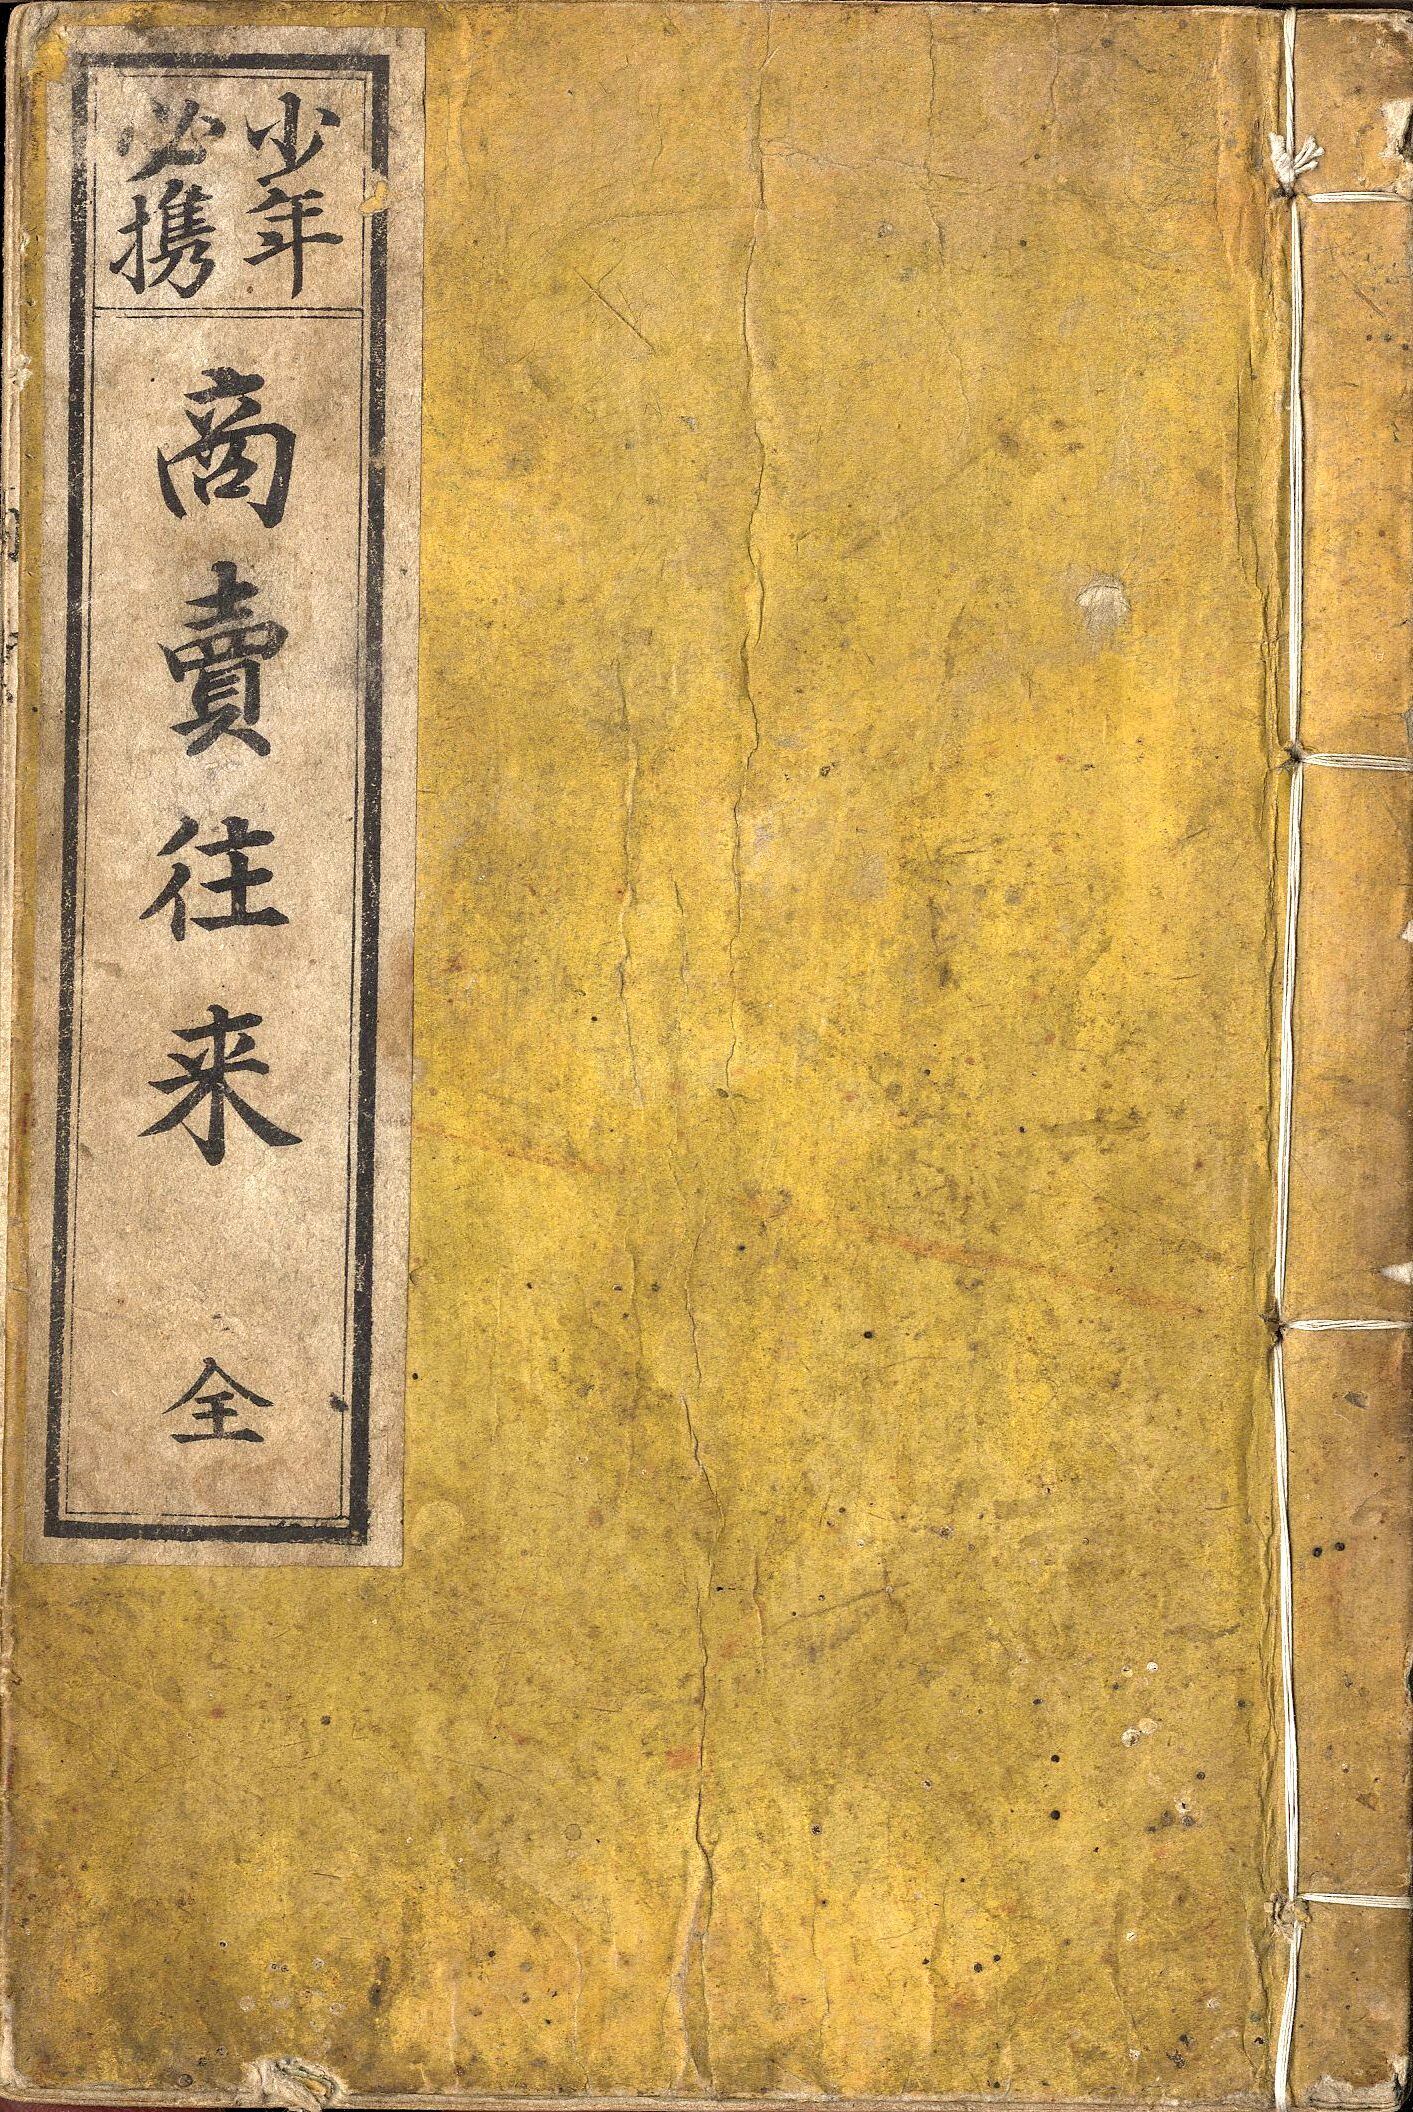 少年
必携
商賣往来
全